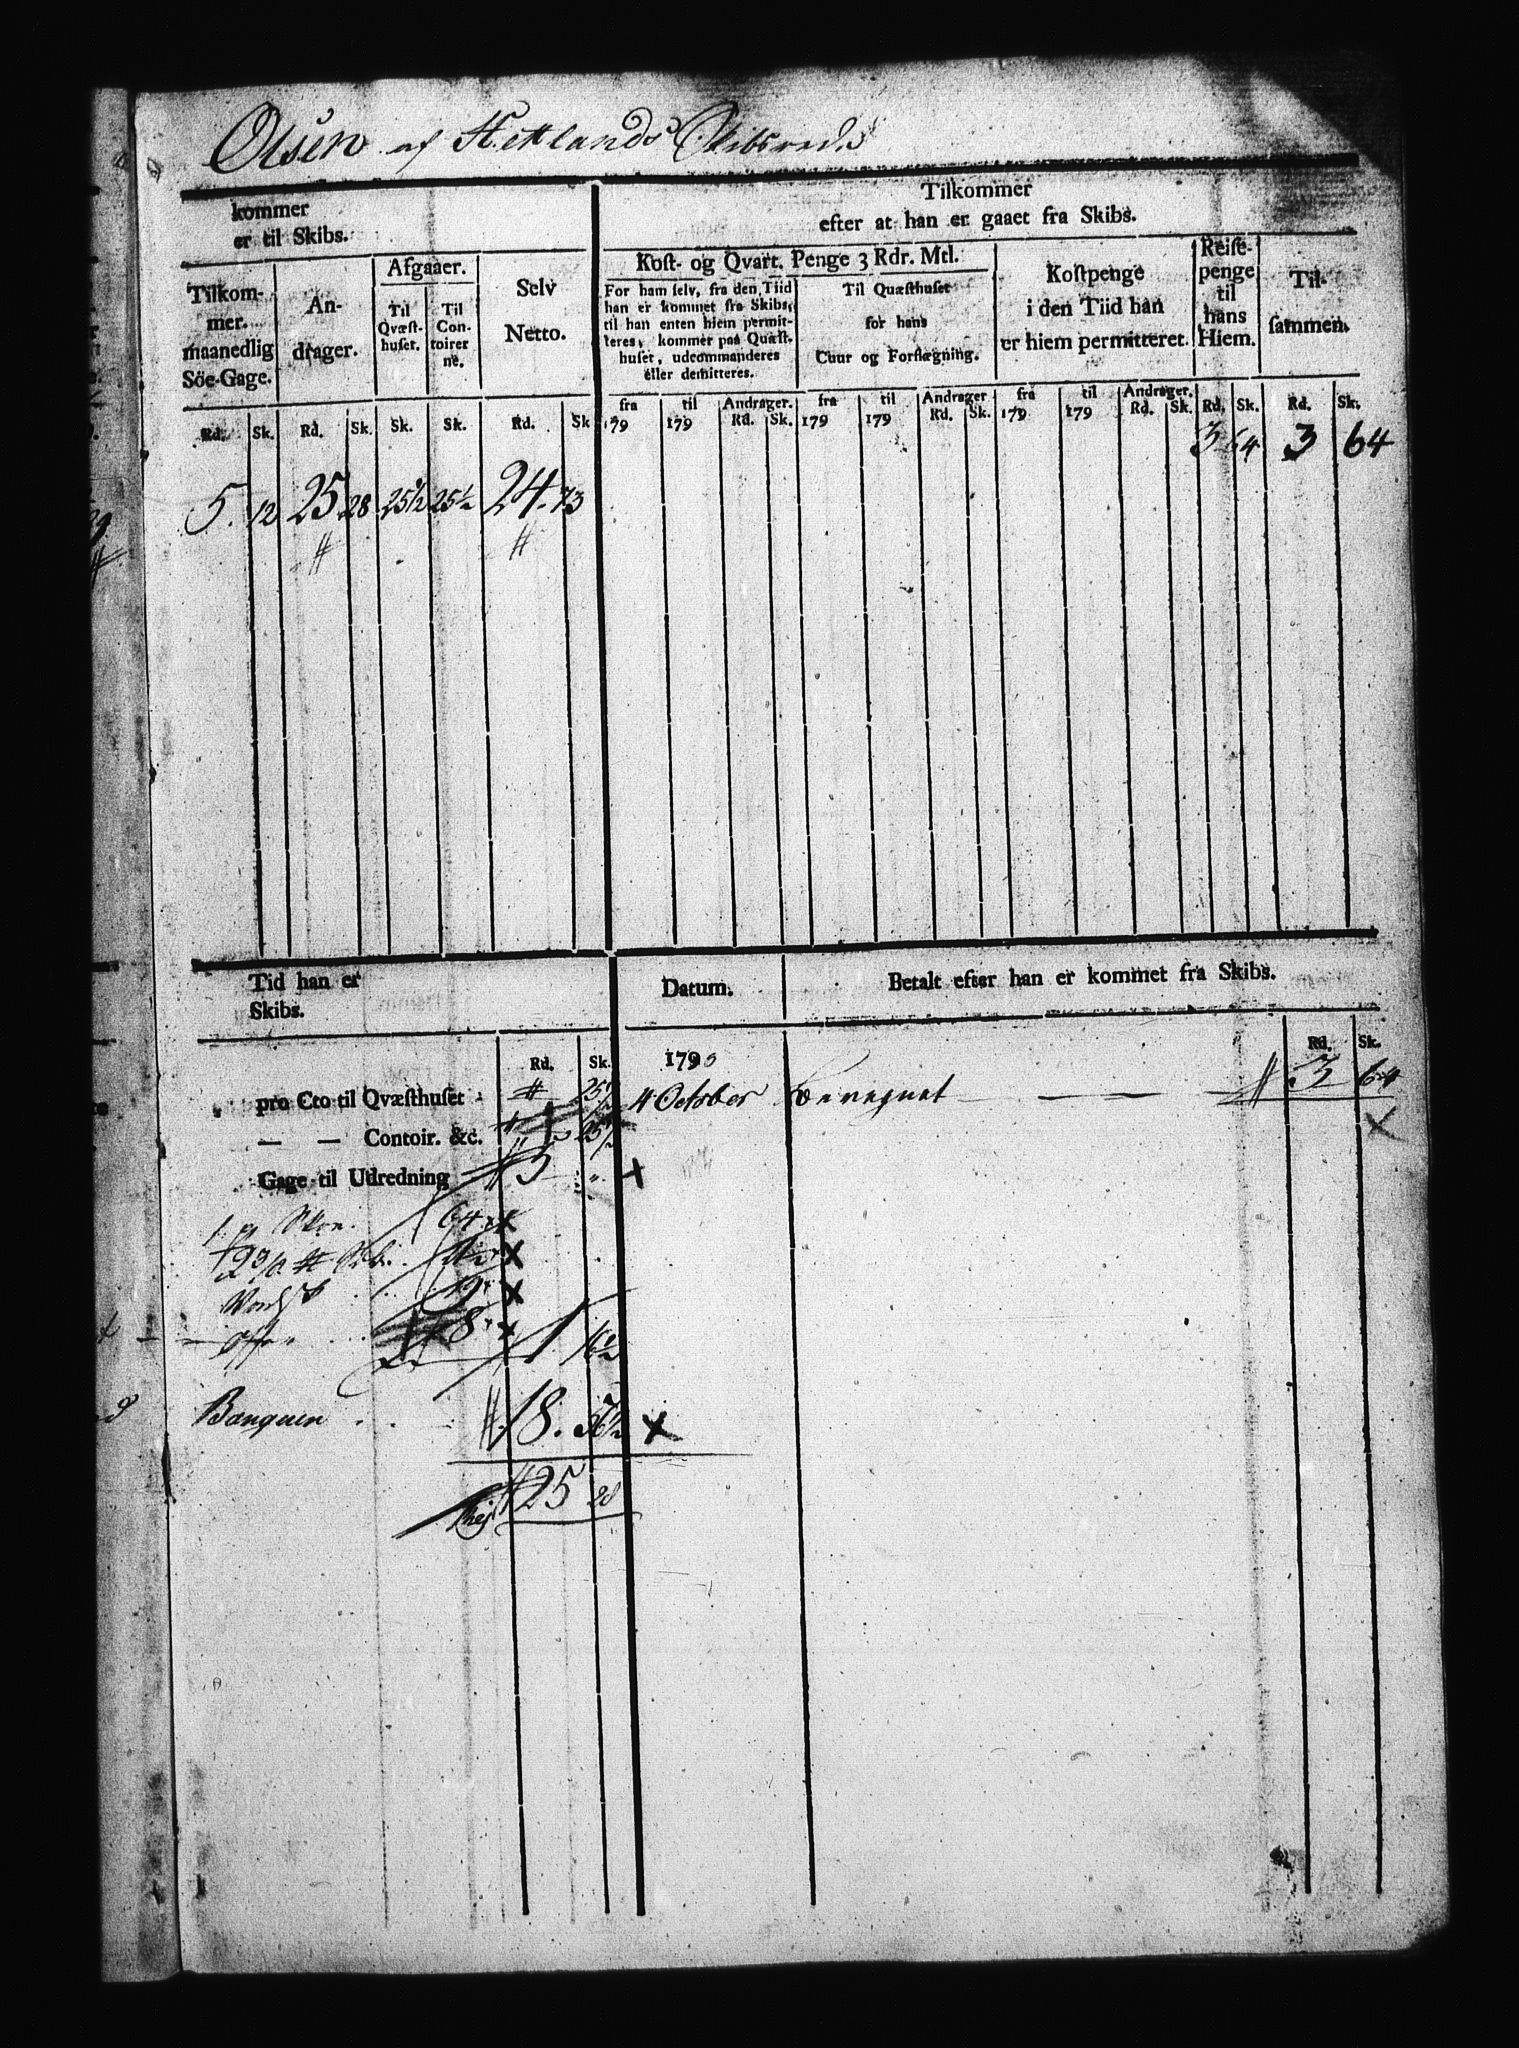 Olsen af Hetlands Skibsrede
kommer
er til Skibs.
Tilkommer
efter at han er gaaet fra Skibs.
Tilkom-
mer.
maanedlig
Söe-Gage.
An-
drager.
Afgaaer.
Til
Qvæst-
huset.
Til
Con-
toirer
ne.
Selv
Netto.
Kost- og Qvart. Penge 3 Rdr. Mtl.
For ham selv, fra den Tiid
han er kommet fra Skibs,
til han enten hiem permit-
teres, kommer paa Quæst-
huset, udcommanderes
eller demitteres.
Til Quæsthuset
for hans
Cuur og Forflægning.
Kostpenge
i den Tiid han
er hiem permitteret.
Reise-
penge
til
hans
Hiem.
Til-
sammen.
fra til Andrager. fra til Andrager fra til Andrager.
Rd. Sk. Rd. Sk. Sk. Sk. Rd. Sk. 179 179 Rd. Sk. 179 179 Rd. Sk. 179 179 Rd. Sk. Rd. Sk. Rd. Sk.
3 64 3 64
5. 12 25 28 25½ 25½ 24. 73
Tid han er
Skibs.
Datum.
Betalt efter han er kommet fra Skibs.
Rd. Sk. 179 Rd. Sk.
pro Cto til Qvæsthuset 25½ 4 October 3 64
— — Contoir. &c. 25½
Gage til Udredning 5 „
64
8
1 16½
Banquen 18. 57½
25 28